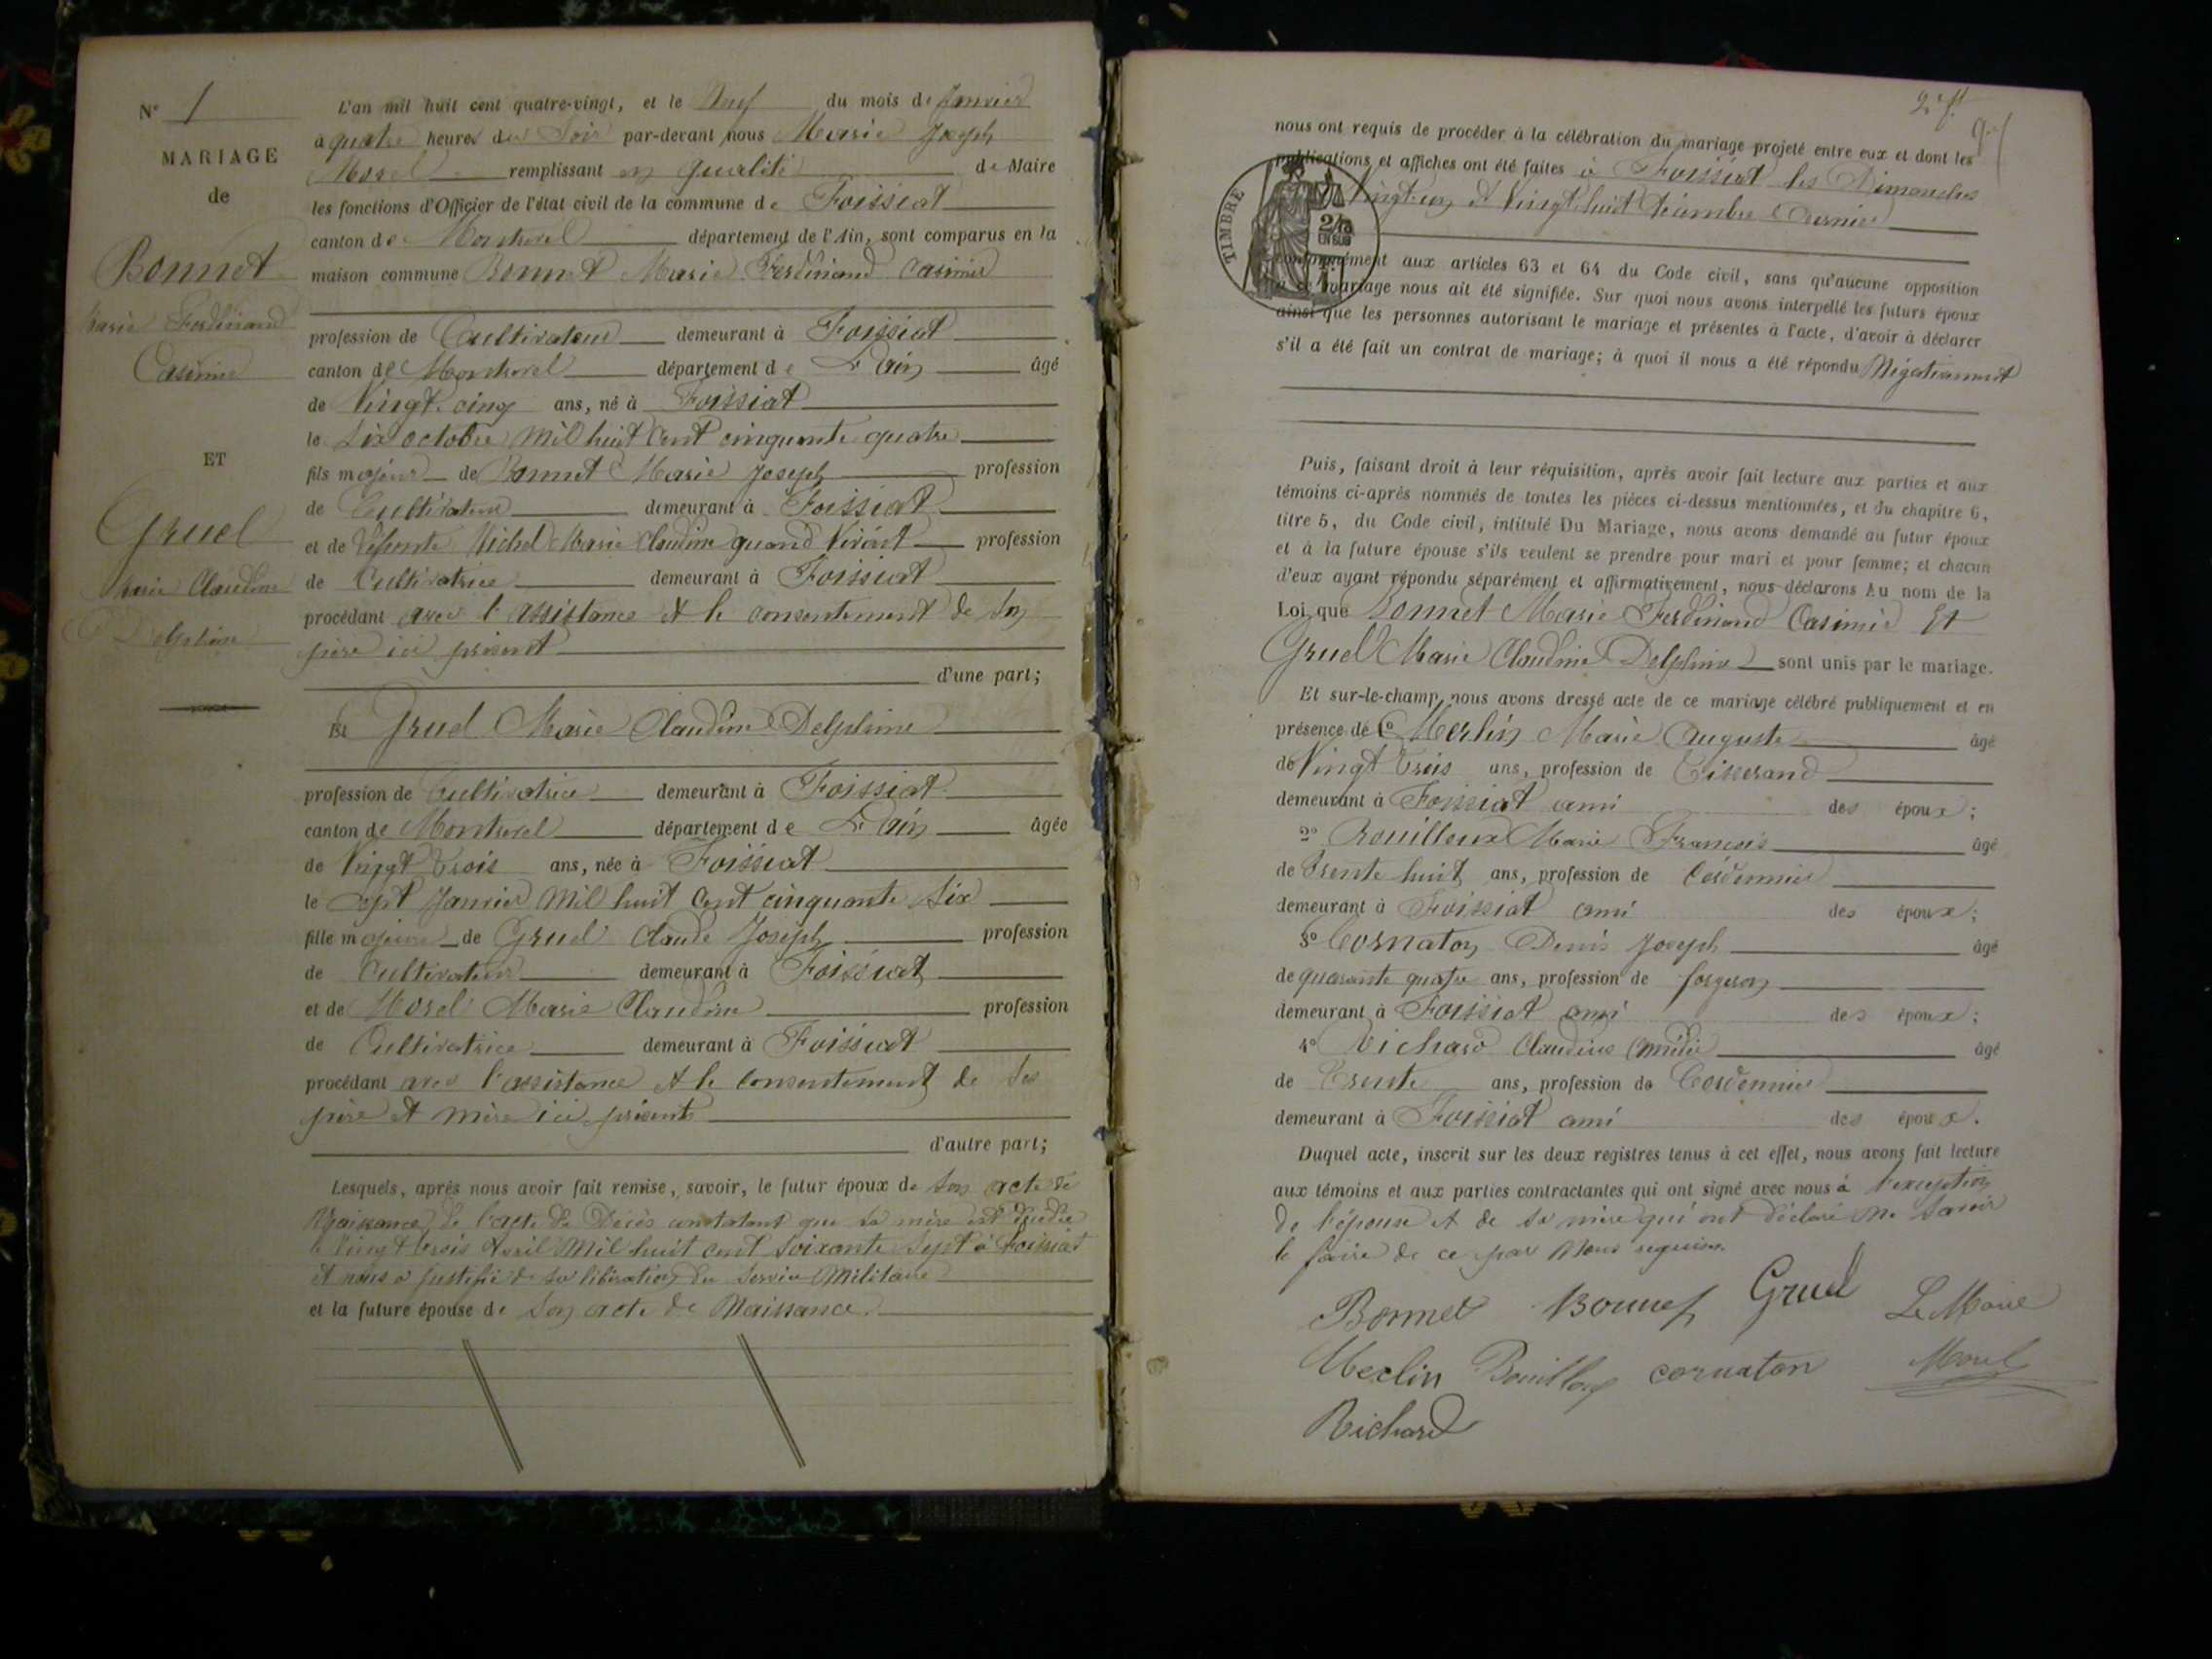 N° 1
MARIAGE
de
Bonnet
Marie Ferdinand
Casimir
ET
Gruel
Marie Claudine
Delphine
L'an mil huit cent quatre-vingt, et le Neuf du mois de Janvier
à quatre heures du Soir par-devant nous Marie Joseph
Morel remplissant en qualité de Maire
les fonctions d'Officier de l'état civil de la commune de Foissiat
canton de Montrevel département de l'Ain, sont comparus en la
maison commune Bonnet Marie Ferdinand Casimir
profession de Cultivateur demeurant à Foissiat
canton de Montrevel département de L'Ain âgé
de Vingt-cinq ans, né à Foissiat
le Six octobre mil huit Cent cinquante quatre
fils majeur de Bonnet Marie Joseph profession
de Cultivateur demeurant à Foissiat
et de Défunte Michel Marie Claudine quand Vivait profession
de Cultivatrice demeurant à Foissiat
procédant avec l'assistance et le consentement de Son
père ici présent
d'une part;
Et Gruel Marie Claudine Delphine
profession de Cultivatrice demeurant à Foissiat
canton de Montrevel département de L'Ain âgée
de Vingt Trois ans, née à Foissiat
le Sept Janvier Mil huit Cent cinquante Six
fille majeure de Gruel Claude Joseph profession
de Cultivateur demeurant à Foissiat
et de Morel Marie Claudine profession
de Cultivatrice demeurant à Foissiat
procédant avec l'assistance et le Consentement de Ses
père et mère ici présents
d'autre part;
Lesquels, après nous avoir fait remise, savoir, le futur époux de Son acte de
Naissance, de l'acte de Décès constatant que sa mère est décédée
le Vingt trois Avril Mil huit cent Soixante Sept à Foissiat
et nous a justifié de sa libération du Service Militaire
et la future épouse de Son acte de Naissance.
2e ft
nous ont requis de procéder à la célébration du mariage projeté entre eux et dont les
publications et affiches ont été faites à Foissiat les Dimanches
Vingt-un et Vingt huit Décembre Dernier
TIMBRE
EN SUS
conformément aux articles 63 et 64 du Code civil, sans qu'aucune opposition
à ce mariage nous ait été signifiée. Sur quoi nous avons interpellé les futurs époux
ainsi que les personnes autorisant le mariage et présentes à l'acte, d'avoir à déclarer
s'il a été fait un contrat de mariage; à quoi il nous a été répondu Négativement
Puis, faisant droit à leur réquisition, après avoir fait lecture aux parties et aux
témoins ci-après nommés de toutes les pièces ci-dessus mentionnées, et du chapitre 6,
titre 5, du Code civil, intitulé Du Mariage, nous avons demandé au futur époux
et à la future épouse s'ils veulent se prendre pour mari et pour femme; et chacun
d'eux ayant répondu séparément et affirmativement, nous déclarons Au nom de la
Loi que Bonnet Marie Ferdinand Casimir Et
Gruel Marie Claudine Delphine sont unis par le mariage.
Et sur-le-champ nous avons dressé acte de ce mariage célébré publiquement et en
présence de 1° Merlin Marie Auguste âgé
de Vingt Trois ans, profession de Tisserand
demeurant à Foissiat ami des époux;
2° Rouilloux Marie François âgé
de Trente huit ans, profession de Cordonnier
demeurant à Foissiat ami des époux;
3° Cornaton Denis Joseph âgé
de quarante quatre ans, profession de forgeron
demeurant à Foissiat ami des époux;
4° Richard Claudius Amédée âgé
de Trente ans, profession de Cordonnier
demeurant à Foissiat ami des époux.
Duquel acte, inscrit sur les deux registres tenus à cet effet, nous avons fait lecture
aux témoins et aux parties contractantes qui ont signé avec nous à l'exception
de l'épouse et de sa mère qui ont déclaré ne Savoir
le faire de ce par Nous requises.
Bonnet Bonnet Gruel Le Maire
Merlin Rouilloux cornaton Morel
Richard